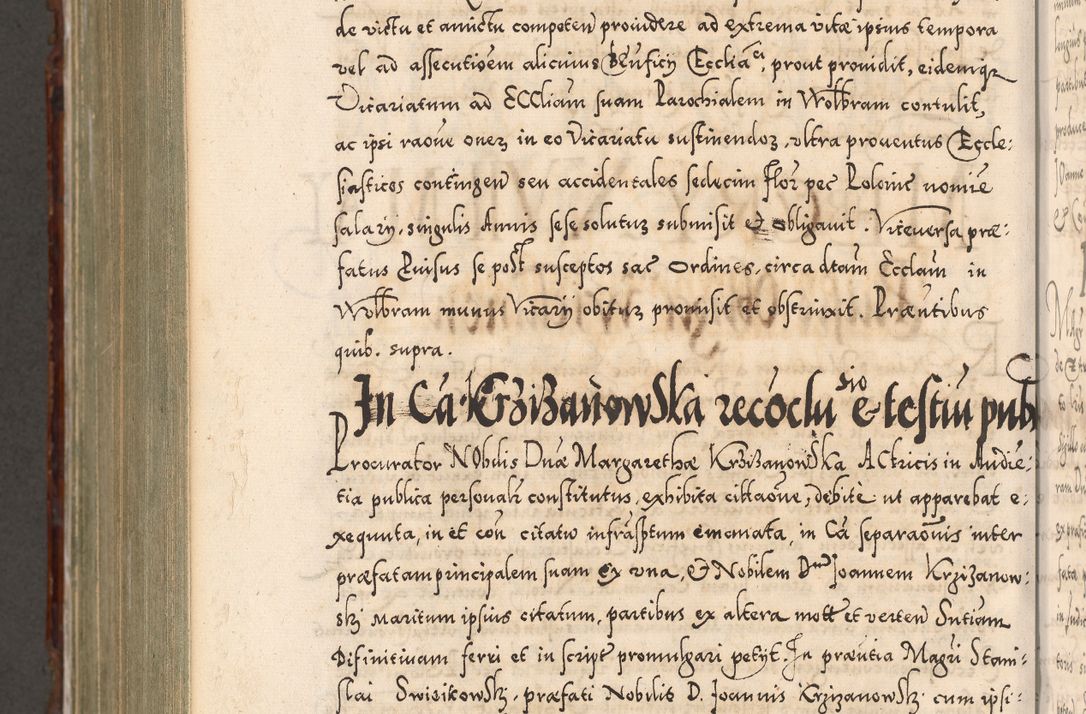 de victu et amictu competen̄ prouidere ad extrema vitæ ipsius tempora
vel ad assecutioēm alicuius Bn̄ficij Eccliæ, prout prouidit, eidemqz
Vicariatum ad ECCliam suam Parochialem in Wolbram contulit,
ac ipsi raōne onerz in eo Vicariatu sustinendoz, vltra prouentus Eccle:
siasticos contingen̄ seu accidentales sedecim flor pec Polonic nomīe
salarij, singulis Annis sese soluturz submisit et obligauit. Viceuersa præ:
fatus Prouisus se post susceptos sac Ordines, circa dtam Ecclam in
Wolbram munus Vicarij obiturz promisit et obstrinxit. Præn̄tibus
quib. supra.
In Cā Krzizanowska recōclusio e testiū pub
Procurator NObilis Dnæ Margarethæ Krzizanowska ACtricis in Audiē:
tia publica personalr constitutus, exhibita cittaōne, debitè ut apparebat e:
xequuta, in et con̄ citatū infrascptum emanata, in Cā separaōnis inter
præfatam principalem suam ex vna, & Nobilem Dnum Joannem Krzizanow:
skj Maritum ipsius citatum, partibus ex altera mott et verten̄ Sn̄tiam
Difinitiuam ferri et in script promulgari petijt. In præn̄tia Magri Stani:
slai Swieikowskj, præfati Nobilis D. Joannis Krzizanowskj cum ipsi: